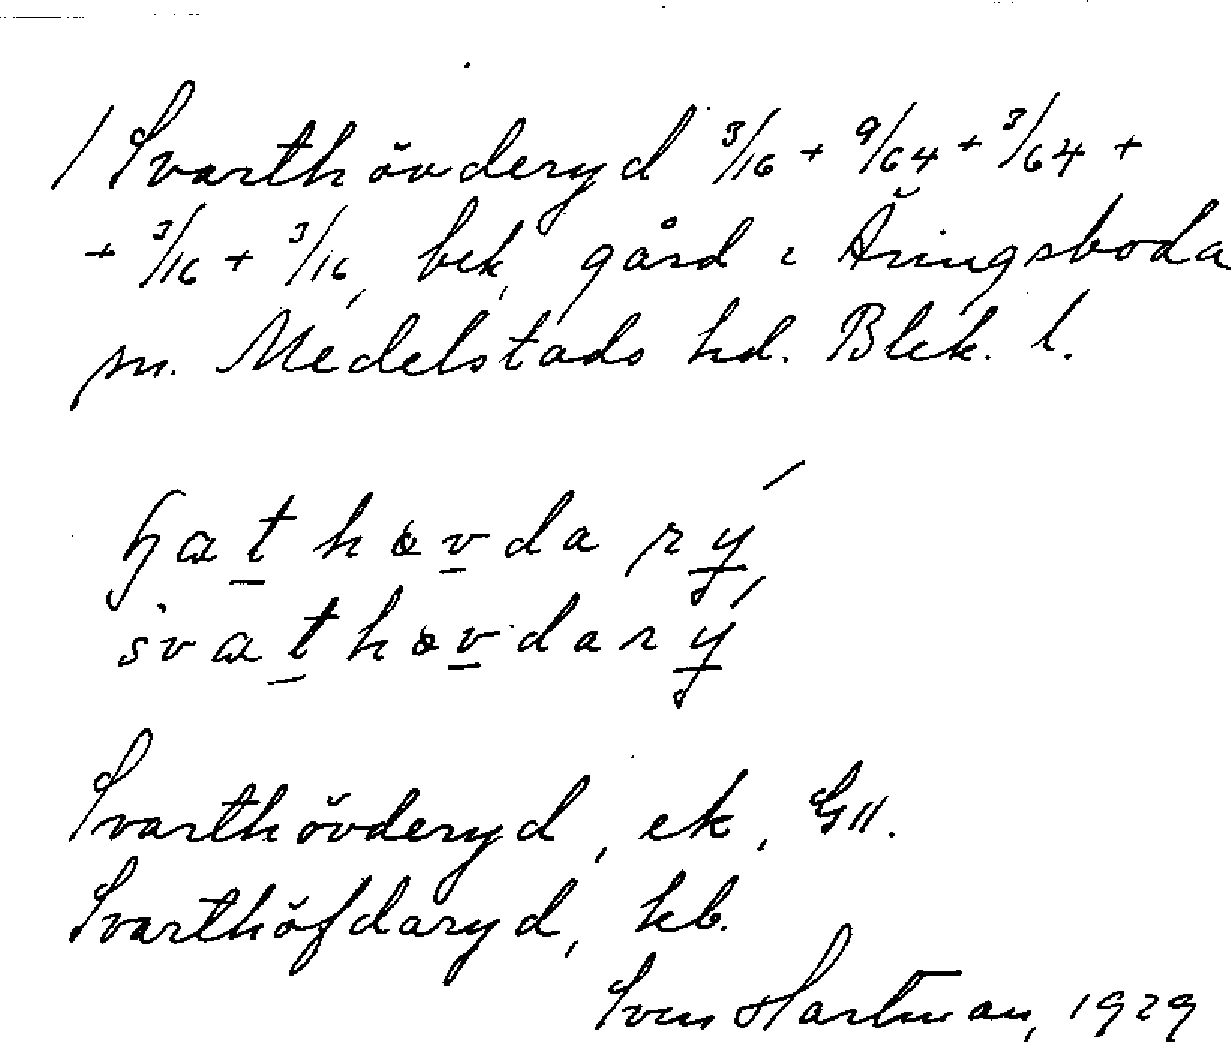 / Svarthövderyd 3/16 + 9/64 + 3/64 +
+ 3/16 + 3/16, bek. gård i Åringsboda
sn. Medelstads hd. Blek. l.
svathøvdarý
Svarthövderyd, ek, GII.
Svarthöfdaryd, kb.
Sven Hartman, 1929